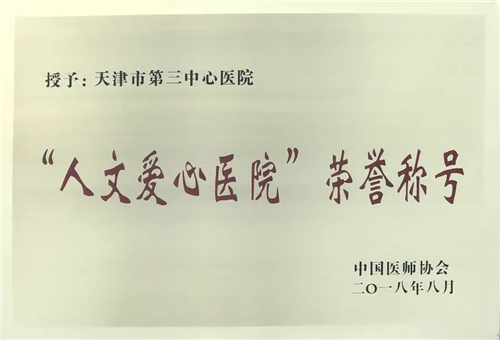 授予：天津市第三中心医院
“人文爱心医院”荣誉称号
中国医师协会
二〇一八年八月